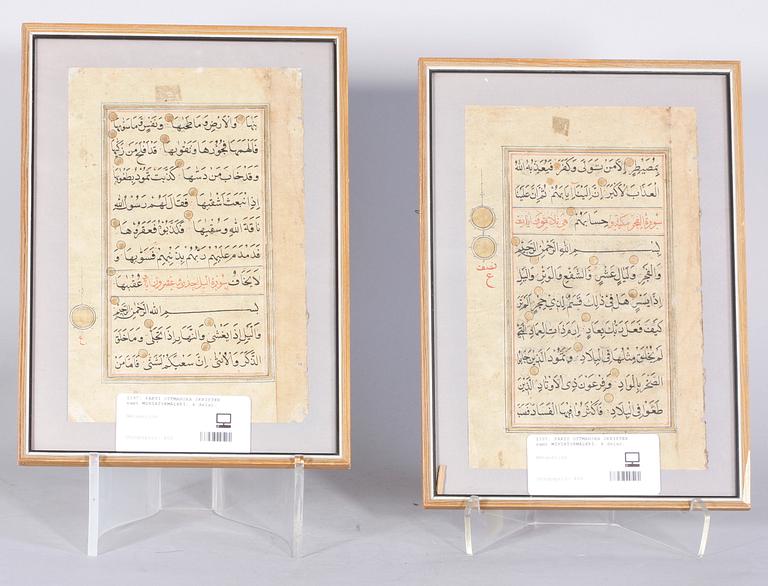 بنها والارض وما طحيها ونفس وما سويها
فالهمها فجورها وتقويها قد افلح من زكيها
وقد خاب من دسيها كذبت ثمود بطغويها
اذ انبعث اشقيها فقال لهم رسول الله
ناقة الله وسقيها فكذبوه فعقروها
فدمدم عليهم ربهم بذنبهم فسويها و
لا يخاف سورة الليل احدى وعشرون آية عقبيها
بسم الله الرحمن الرحيم
والليل اذا يغشى والنهار اذا تجلى وما خلق
الذكر والانثى ان سعيكم لشتى فاما من
ع
1197. PARTI OTTOMANSKA SKRIFTER
samt MINIATYRMÅLERI, 4 delar.
بمصيطر الا من تولى وكفر فيعذبه الله
العذاب الاكبر ان الينا ايابهم ثم ان علينا
سورة الفجر مكية حسابهم
بسم الله الرحمن الرحيم
والفجر وليال عشر والشفع والوتر والليل
اذا يسر هل في ذلك قسم لذي حجر الم تر
كيف فعل ربك بعاد ارم ذات العماد التي
لم يخلق مثلها في البلاد وثمود الذين جابوا
الصخر بالواد وفرعون ذي الاوتاد الذين
طغوا في البلاد فاكثروا فيها الفساد فصب
نصف
ع
1197. PARTI OTTOMANSKA SKRIFTER
samt MINIATYRMÅLERI, 4 delar.